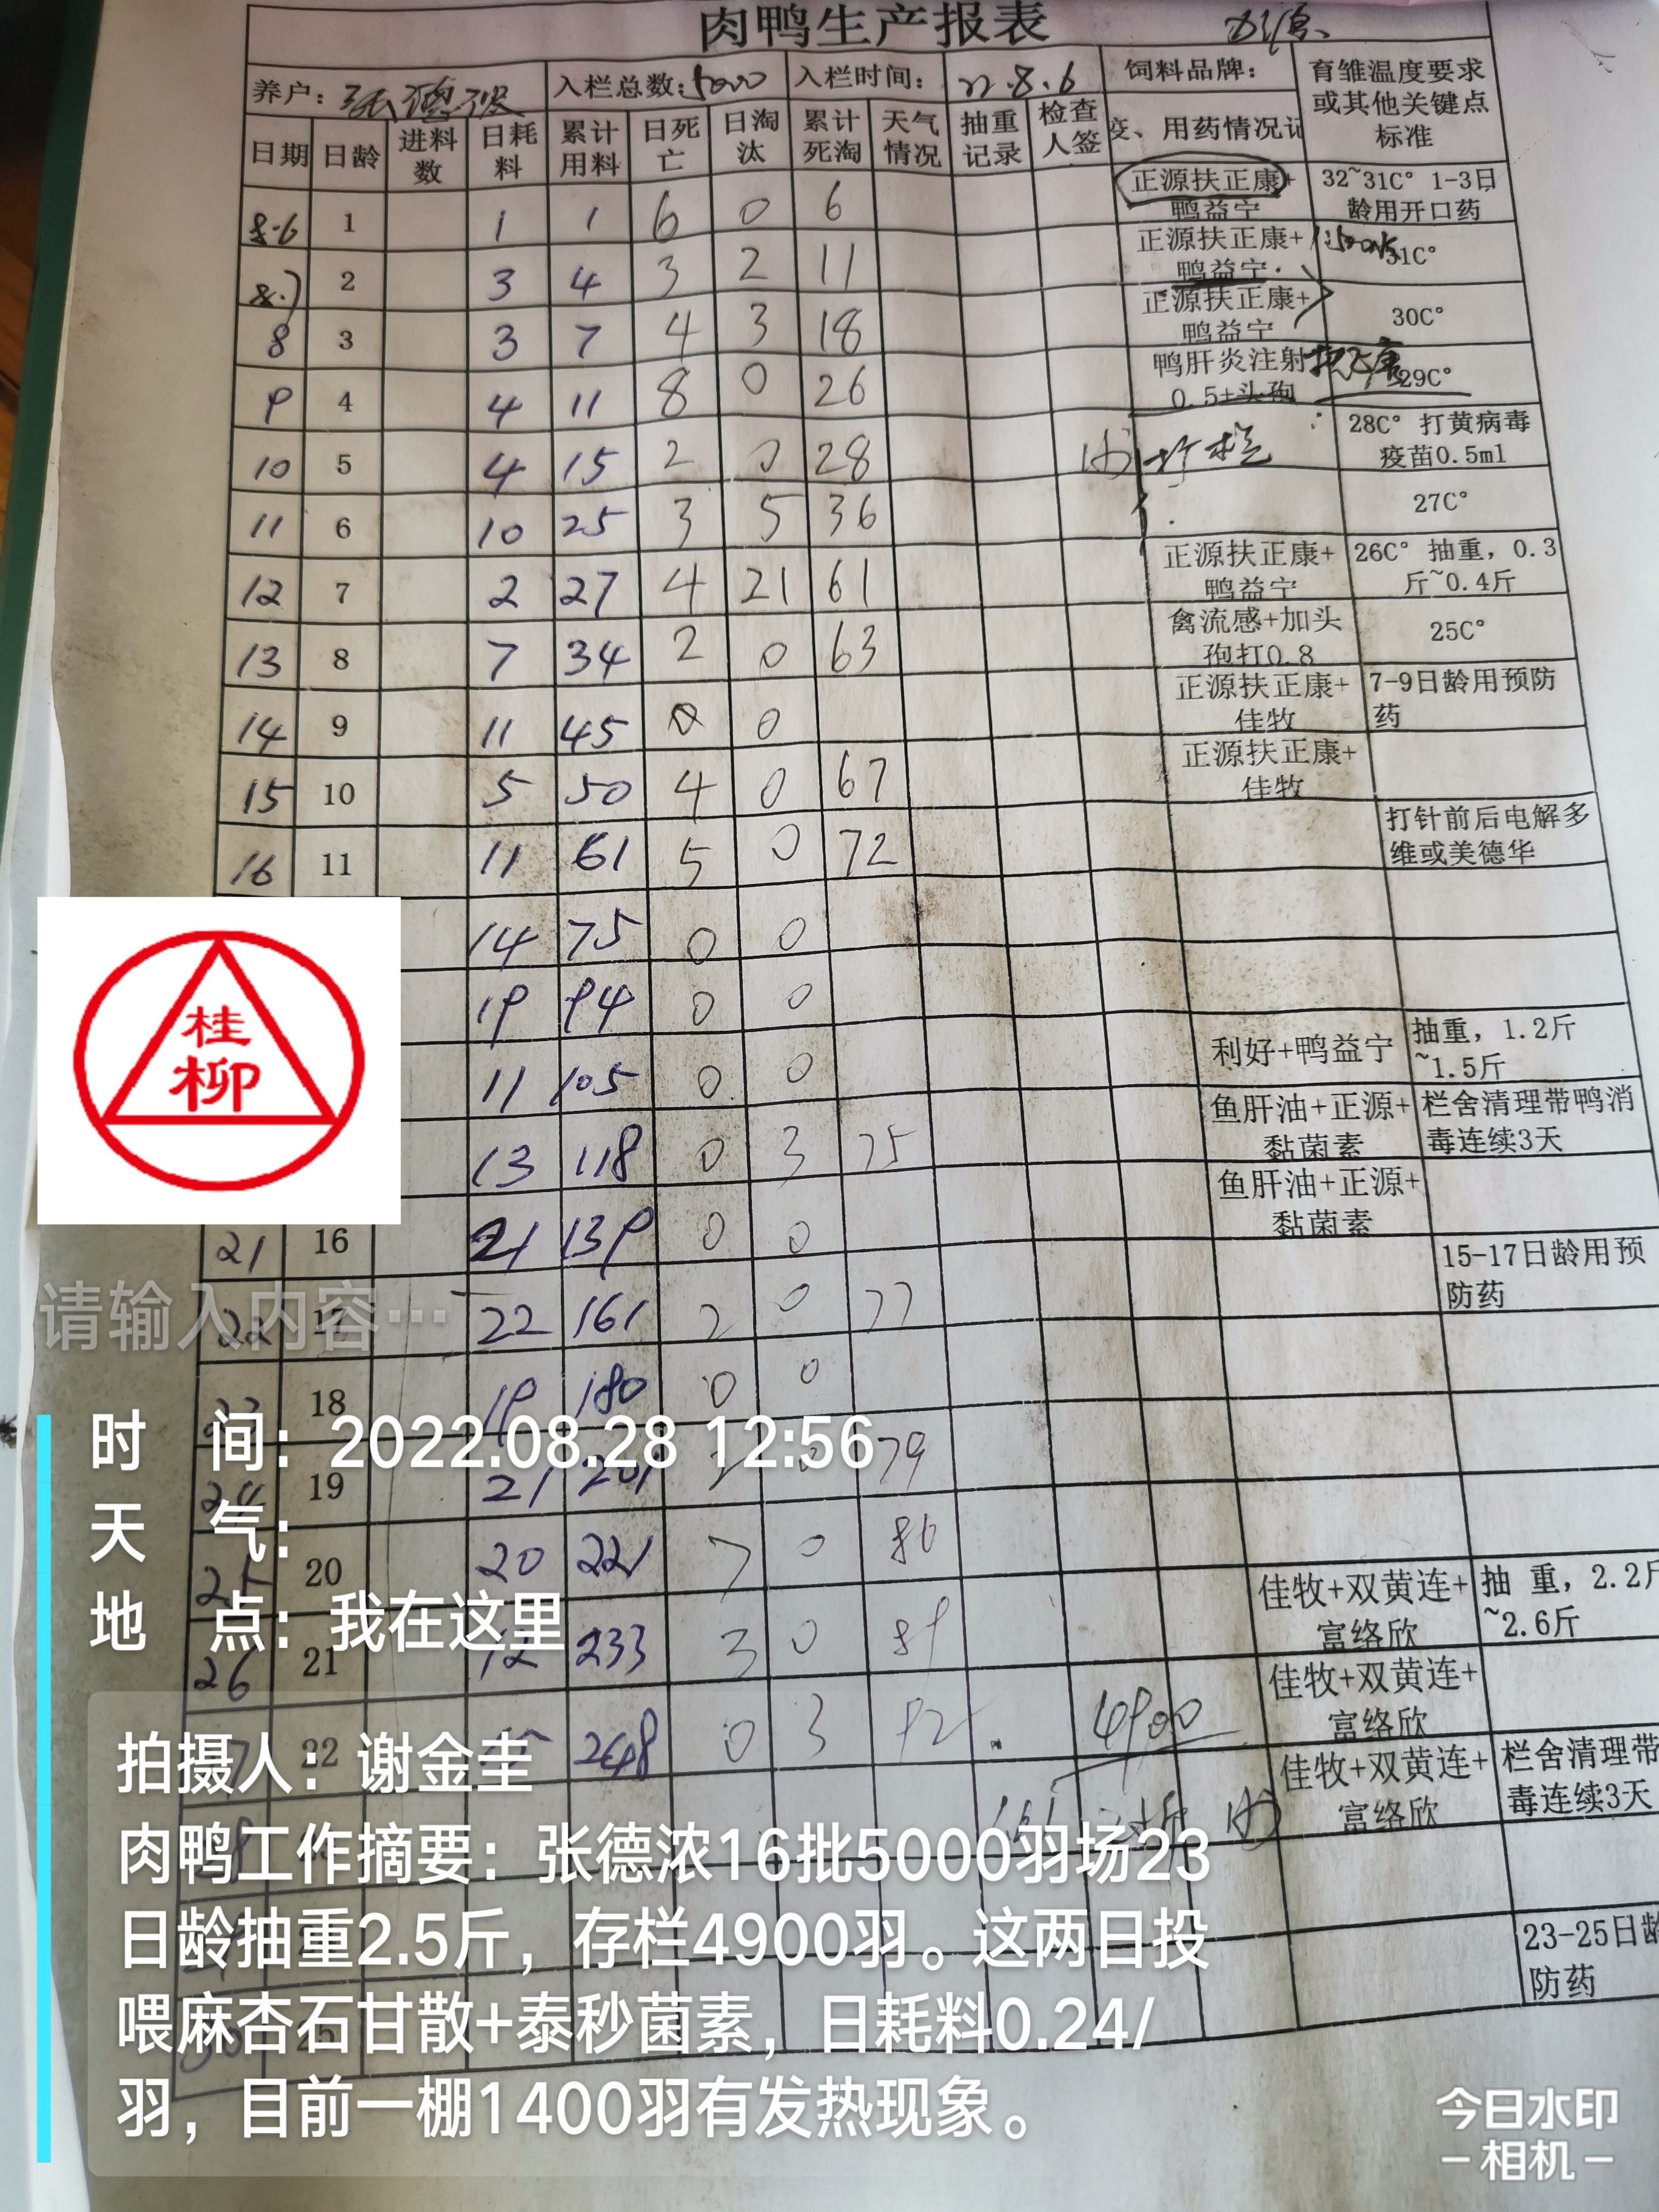 肉鸭生产报表
养户: 张德浓 入栏总数: 5000 入栏时间: 22.8.6 饲料品牌: 育雏温度要求或其他关键点标准
日期 日龄 进料数 日耗料 累计用料 日死亡 日淘汰 累计死淘 天气情况 抽重记录 检查人签 疫、用药情况记
8.6 1 1 1 6 0 6 正源扶正康+鸭益宁 32~31C° 1-3日龄用开口药
8.7 2 3 4 3 2 11 正源扶正康+鸭益宁 31C°
8 3 3 7 4 3 18 正源扶正康+鸭益宁 30C°
9 4 4 11 8 0 26 鸭肝炎注射0.5+头孢 29C°
10 5 4 15 2 0 28 28C° 打黄病毒疫苗0.5ml
11 6 10 25 3 5 36 27C°
12 7 2 27 4 21 61 正源扶正康+鸭益宁 26C° 抽重，0.3斤~0.4斤
13 8 7 34 2 0 63 禽流感+加头孢打0.8 25C°
14 9 11 45 0 0 正源扶正康+佳牧 7-9日龄用预防药
15 10 5 50 4 0 67 正源扶正康+佳牧
16 11 11 61 5 0 72 打针前后电解多维或美德华
14 75 0 0
19 94 0 0
11 105 0 0 利好+鸭益宁 抽重，1.2斤~1.5斤
13 118 0 3 75 鱼肝油+正源+黏菌素 栏舍清理带鸭消毒连续3天
21 16 21 139 0 0 鱼肝油+正源+黏菌素
22 17 22 161 2 0 77 15-17日龄用预防药
18 19 180 0 0
24 19 21 201 2 0 79
25 20 20 221 7 0 86
26 21 12 233 3 0 89 佳牧+双黄连+富络欣 抽 重，2.2斤~2.6斤
22 15 248 0 3 92 4900 佳牧+双黄连+富络欣
佳牧+双黄连+富络欣 栏舍清理带毒连续3天
23-25日龄防药
桂柳
请输入内容…
时 间：2022.08.28 12:56
天 气：
地 点：我在这里
拍摄人：谢金圭
肉鸭工作摘要：张德浓16批5000羽场23
日龄抽重2.5斤，存栏4900羽。这两日投
喂麻杏石甘散+泰秒菌素，日耗料0.24/
羽，目前一棚1400羽有发热现象。
今日水印
相机